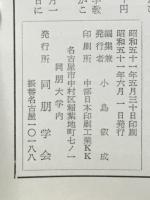 昭和五十一年五月三十日印刷
昭和五十一年六月一日発行
編集兼
発行者　小島叡成
印刷所　中部日本印刷工業KK
名古屋市中村区稲葉地町七ノ一
同朋大学内
発行所　同朋学会
振替名古屋一〇一八八